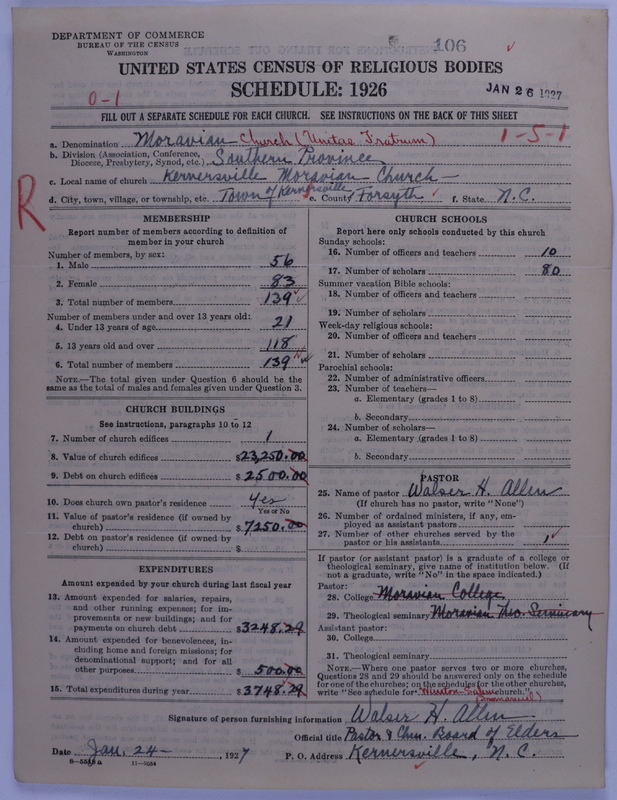 DEPARTMENT OF COMMERCE
BUREAU OF THE CENSUS
WASHINGTON
106
UNITED STATES CENSUS OF RELIGIOUS BODIES
SCHEDULE: 1926
JAN 26 1927
0-1
FILL OUT A SEPARATE SCHEDULE FOR EACH CHURCH. SEE INSTRUCTIONS ON THE BACK OF THIS SHEET
a. Denomination Moravian Church (Unitas Fratrum) 1-5-1
b. Division (Association, Conference, Diocese, Presbytery, Synod, etc.) Southern Province
c. Local name of church Kernersville Moravian Church
d. City, town, village, or township, etc. Town of Kernersville e. County Forsyth f. State N.C.
R
MEMBERSHIP
Report number of members according to definition of
member in your church
Number of members, by sex:
1. Male 56
2. Female 83
3. Total number of members 139
Number of members under and over 13 years old:
4. Under 13 years of age 21
5. 13 years old and over 118
6. Total number of members 139
NOTE.—The total given under Question 6 should be the
same as the total of males and females given under Question 3.
CHURCH BUILDINGS
See instructions, paragraphs 10 to 12
7. Number of church edifices 1
8. Value of church edifices $23,250.00
9. Debt on church edifices $2500.00
10. Does church own pastor's residence Yes
Yes or No
11. Value of pastor's residence (if owned by
church) $7250.00
12. Debt on pastor's residence (if owned by
church) $
EXPENDITURES
Amount expended by your church during last fiscal year
13. Amount expended for salaries, repairs,
and other running expenses; for im-
provements or new buildings; and for
payments on church debt $3248.29
14. Amount expended for benevolences, in-
cluding home and foreign missions; for
denominational support; and for all
other purposes $500.00
15. Total expenditures during year $3748.29
CHURCH SCHOOLS
Report here only schools conducted by this church
Sunday schools:
16. Number of officers and teachers 10
17. Number of scholars 80
Summer vacation Bible schools:
18. Number of officers and teachers
19. Number of scholars
Week-day religious schools:
20. Number of officers and teachers
21. Number of scholars
Parochial schools:
22. Number of administrative officers
23. Number of teachers—
a. Elementary (grades 1 to 8)
b. Secondary
24. Number of scholars—
a. Elementary (grades 1 to 8)
b. Secondary
PASTOR
25. Name of pastor Walser H. Allen
(If church has no pastor, write "None")
26. Number of ordained ministers, if any, em-
ployed as assistant pastors
27. Number of other churches served by the
pastor or his assistants 1
If pastor (or assistant pastor) is a graduate of a college or
theological seminary, give name of institution below. (If
not a graduate, write "No" in the space indicated.)
Pastor:
28. College Moravian College
29. Theological seminary Moravian Theo. Seminary
Assistant pastor:
30. College
31. Theological seminary
NOTE.—Where one pastor serves two or more churches,
Questions 28 and 29 should be answered only on the schedule
for one of the churches; on the schedules for the other churches,
write "See schedule for Winston Salem church."
(Immanuel)
Signature of person furnishing information Walser H. Allen
Official title Pastor & Chm. Board of Elders
Date Jan. 24 , 1927 P. O. Address Kernersville, N.C.
8-5518a 11-5054